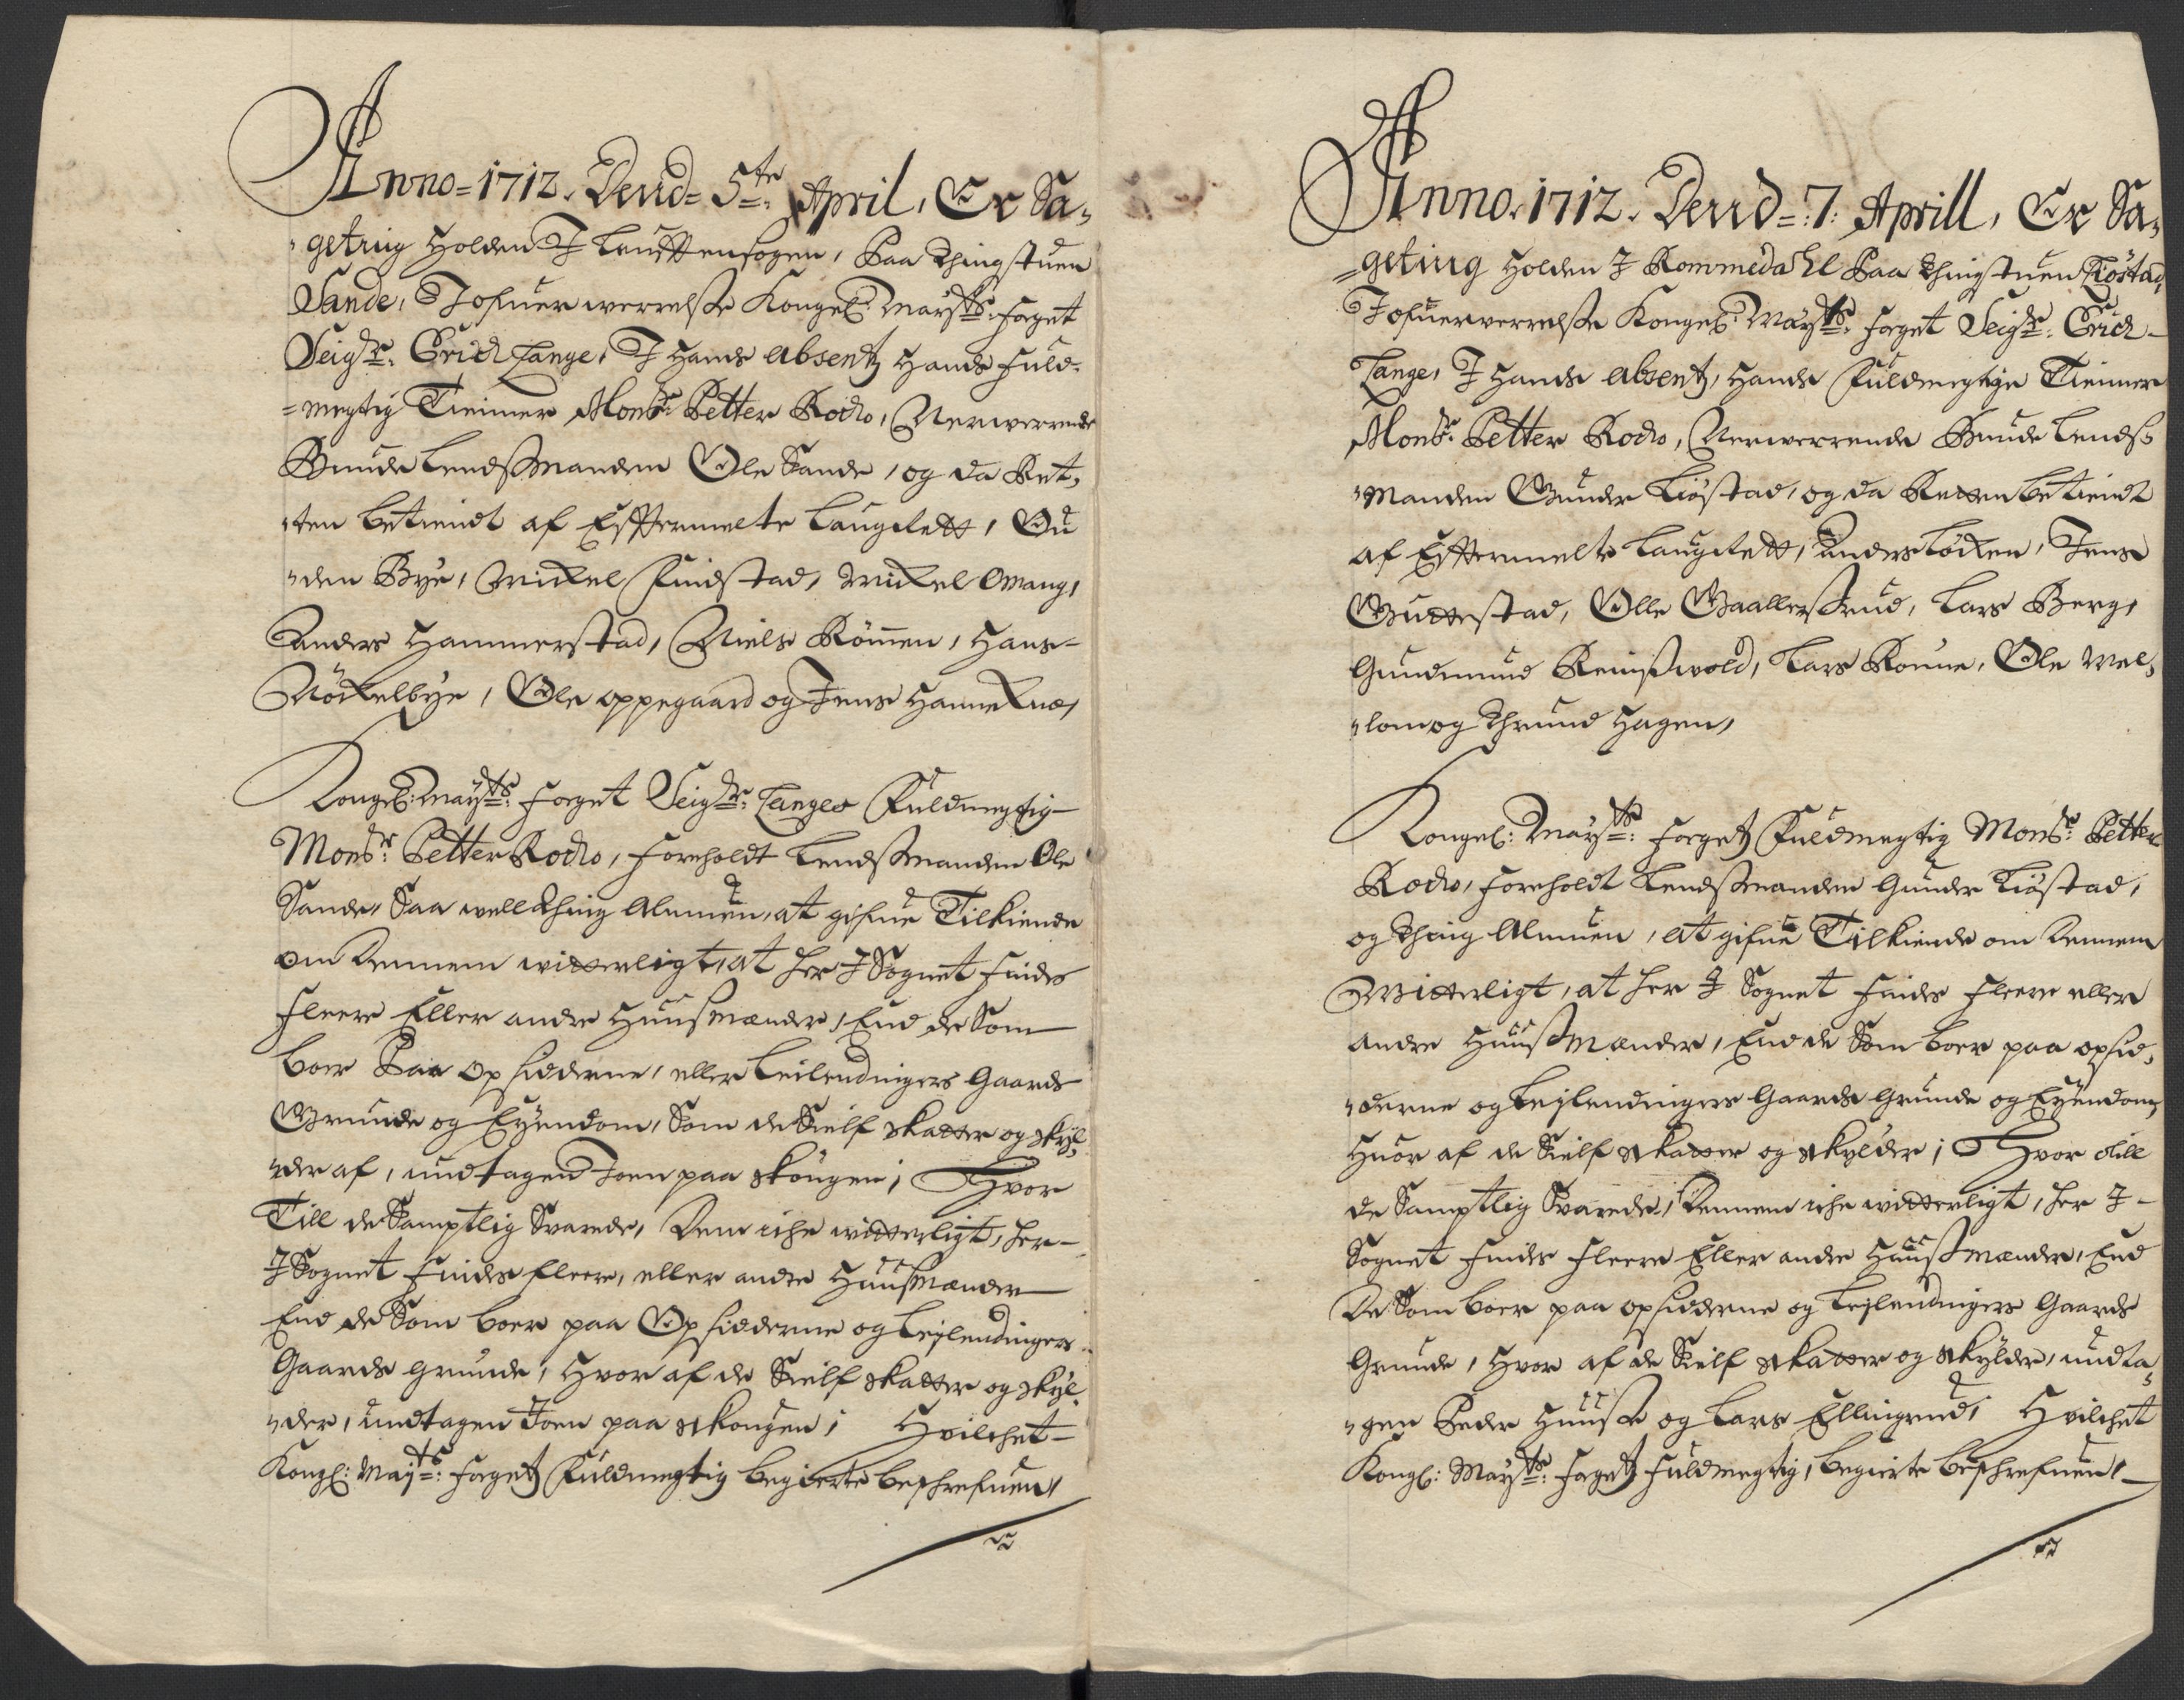 Anno = 1712. Dend = 5te April, Er Sa,
,geting Holden I Leuffensogen, Paa Thingstuen
Sande, I ofuerwerrelse Kongel: Mayts: Foget
Seigr: Erich Lange, I Hands absentz Hands Fuld-
=megtig Tienner Monsr: Petter Rocho, Nerwerrende
Bunde Lendsmanden Ole Sande, og da Ret,
,ten betiendt af Efftermelte Laugrett, Gu
,den Bye, Michel Findstad, Michel Omang,
Anders Hammerstad, Niels Römen, Hans-
Nöckelbye, Ole oppegaard og Jens Hannekne,
Kongel: Mayts: Foget Seigr: Langes Fuldmegtig
Monsr: Petter Rocho, Foreholdt Lendsmanden Ole
Sande, Saa well Thing Almuen, at gifue Tilkiende
om Dennem witterligt, at her I Sognet Findes
Fleere Eller andre Huusmænder, End de Som
boer Paa opsidderne, eller Leilendingers Gaards
Grunde og Eyendom, Som de Sielf skatter og skyl,
,der af, undtagen Joen paa skougen; Hvor
Till de Samptlig Svarede, Dem iche witterligt, her-
I Sognet Findes fleere, eller andre Huusmænder
End de Som boer paa Opsidderne og Lejlendingers
Gaards grunde, Hvor af de Sielf skatter og skyl,
,der, undtagen Joen paa skougen; Hvilchet
Kongl: Mayts: Fogetz Fuldmegtig begierte beschrefuen,
Anno. 1712. Dend =: 7: Aprill, Er Sa,
=geting Holden I Rommedahl Paa Thingstuen Kiöstad,
I ofuerwerrelse Kongel: Mayts: Foget Seigr: Erich-
Lange, I Hands absentz, Hands Fuldmegtige Tienner
Monsr: Petter Rocho, Nerwerrende Bunde Lends
,manden Gunder Kiöstad, og da Retten betiendt
af Efftermelte Laugrett, Anders Löcken, Jens
Guttestad, Olle Gaallerstrud, Lars Berg,
Gundmund Reinswold, Lars Ronne, Ole Mel,
,lom og Thrund Hagen,
Kongel: Mayts: Fogetz Fuldmegtig Monsr: Petter
Rocho, Foreholdt Lendsmanden Gunder Kiöstad,
og Thing Almuen, at gifue Tilkiende om Dennem
Witterligt, at her I Sognet Findes Fleere eller
andre Huusmænder, End de Som boer paa opsid,
,derne og Lejlendingers Gaards grunde og Eyendom,
Huor af de Sielf skatter og skylder; Hvor till
de Samptlig Svarede, Dennem iche witterligt, her I-
Sognet Findes Fleere Eller andre Huusmænder, End
De Som boer paa opsidderne og Lejlendingers Gaards
Grunde, Hvor af de Sielf skatter og skylder, undta,
,gen Peder Huuse og Lars Ellingrud; Hvilchet
Kongl: Mayts: Fogetz Fuldmegtig, begierte beschrefuen,